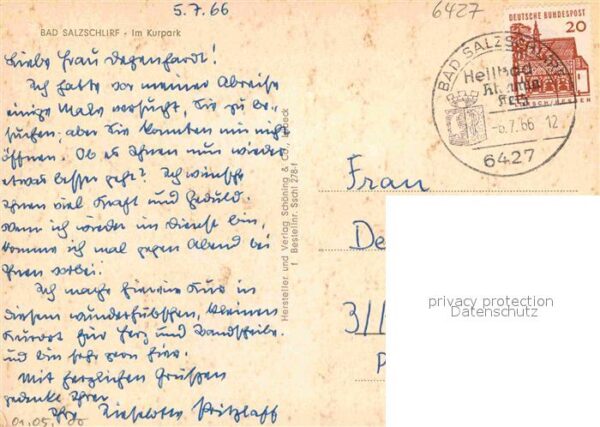 5.7.66
6427
BAD SALZSCHLIRF - Im Kurpark
DEUTSCHE BUNDESPOST
20
BAD SALZSCHLIRF
Heilbad
-6.7.66 12
6427
Liebe Frau Degenhardt!
Ich hatte vor meiner Abreise
einige Male versucht, Sie zu be-
suchen, aber Sie konnten mir nicht
öffnen. Ob es Ihnen nun wieder
etwas besser geht? Ich wünsche
Ihnen viel Kraft und Geduld.
Wenn ich wieder im Dienst bin,
komme ich mal gegen Abend bei
Ihnen vorbei.
Ich mache hier eine Kur in
diesem wunderhübschen, kleinen
Kurort für Herz und Bandscheibe
und bin sehr gern hier.
Mit herzlichen Grüßen
gedenke Ihrer
Ihre Lieselotte Pritzlaff
Hersteller und Verlag Schöning & Co., Lübeck
Bestellnr. Sschl 278-f
Frau
De
3/1
privacy protection
Datenschutz
01.05.